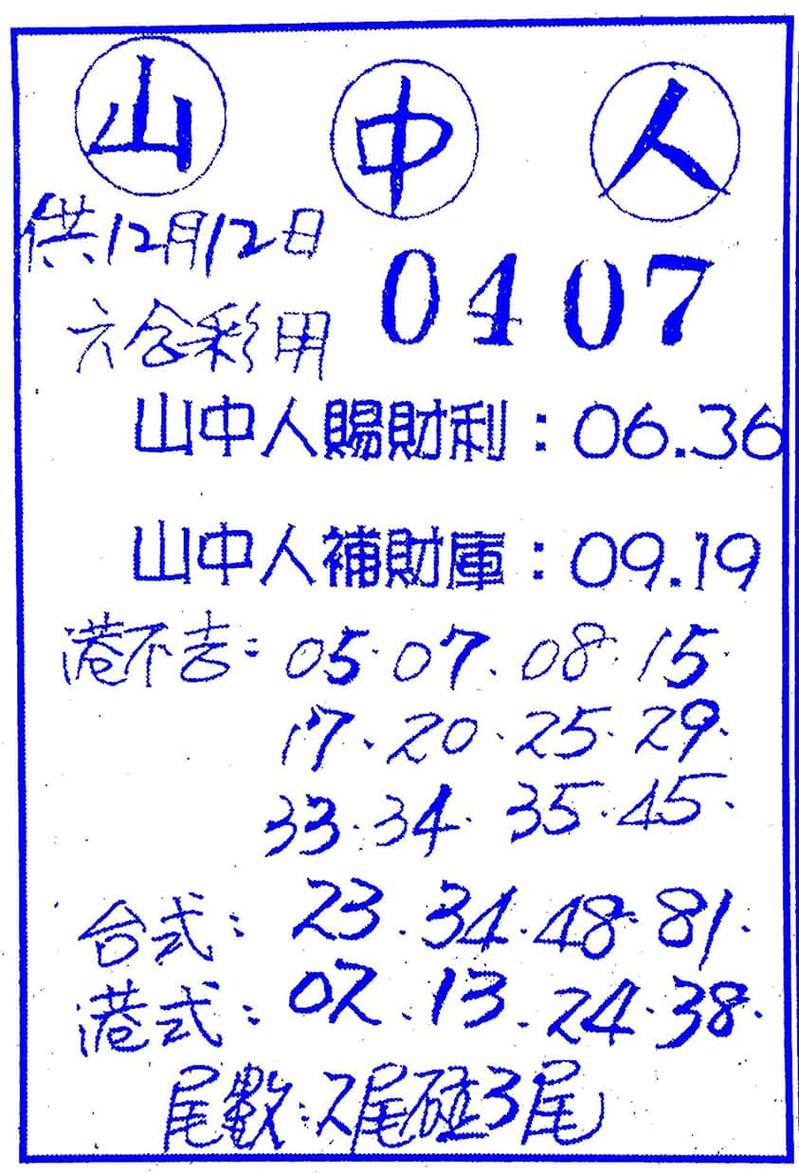 山 中 人
供12月12日
0407
六合彩用
山中人賜財利：06.36
山中人補財庫：09.19
港不吉：05.07.08.15.
17.20.25.29.
33.34.35.45.
台式：23.34.48.81.
港式：02.13.24.38.
尾數：2尾碰3尾